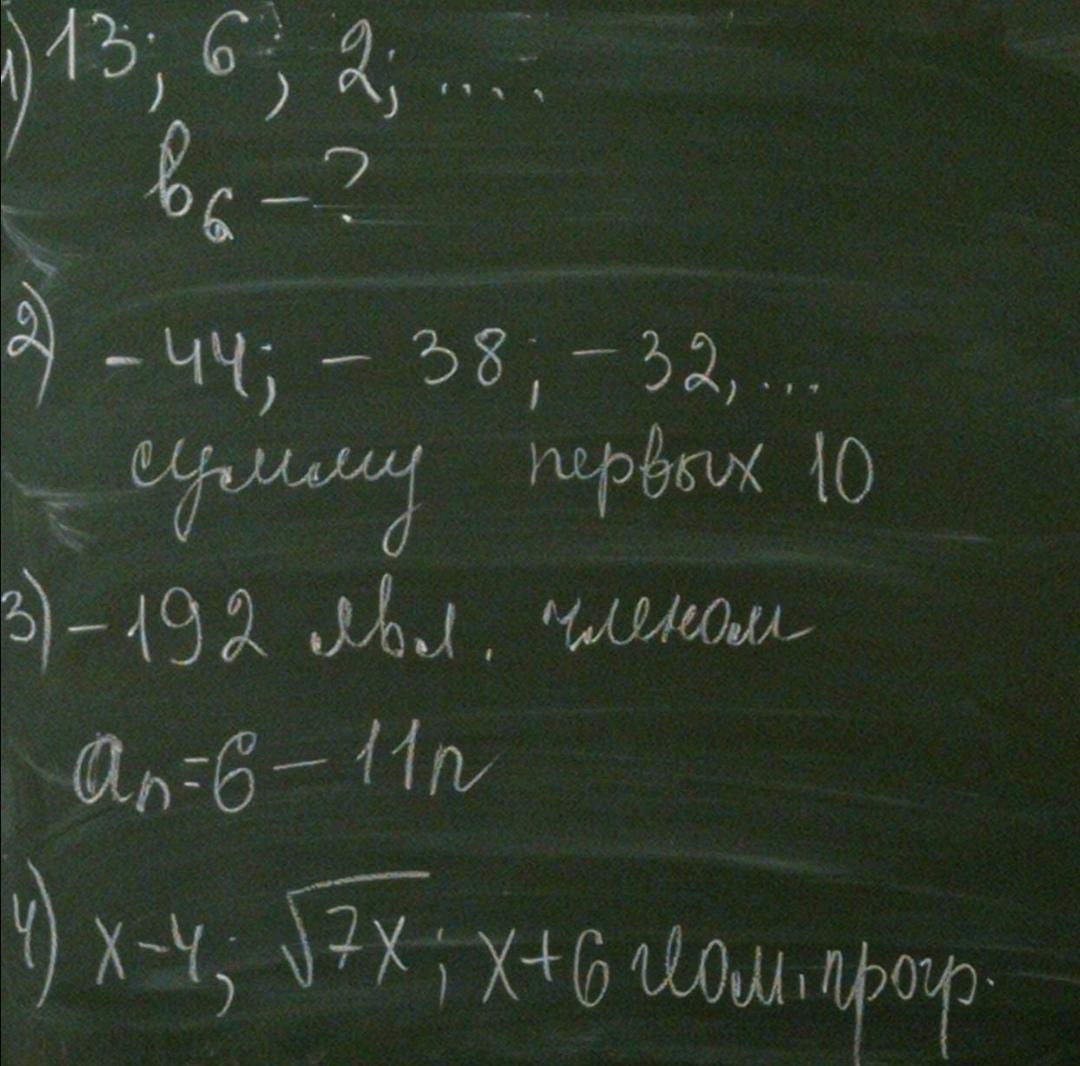 1) 13; 6; 2; ....
b₆ - ?
2) -44; - 38; -32, ...
сумму первых 10
3) -192 явл. членом
aₙ=6 - 11n
4) x-4; √7x; x+6 геом. прогр.